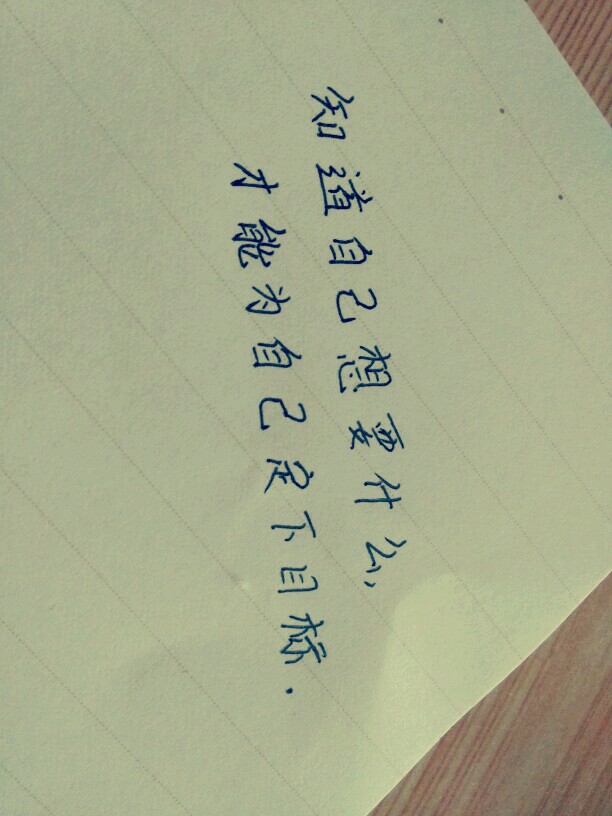 知道自己想要什么,
才能为自己定下目标.